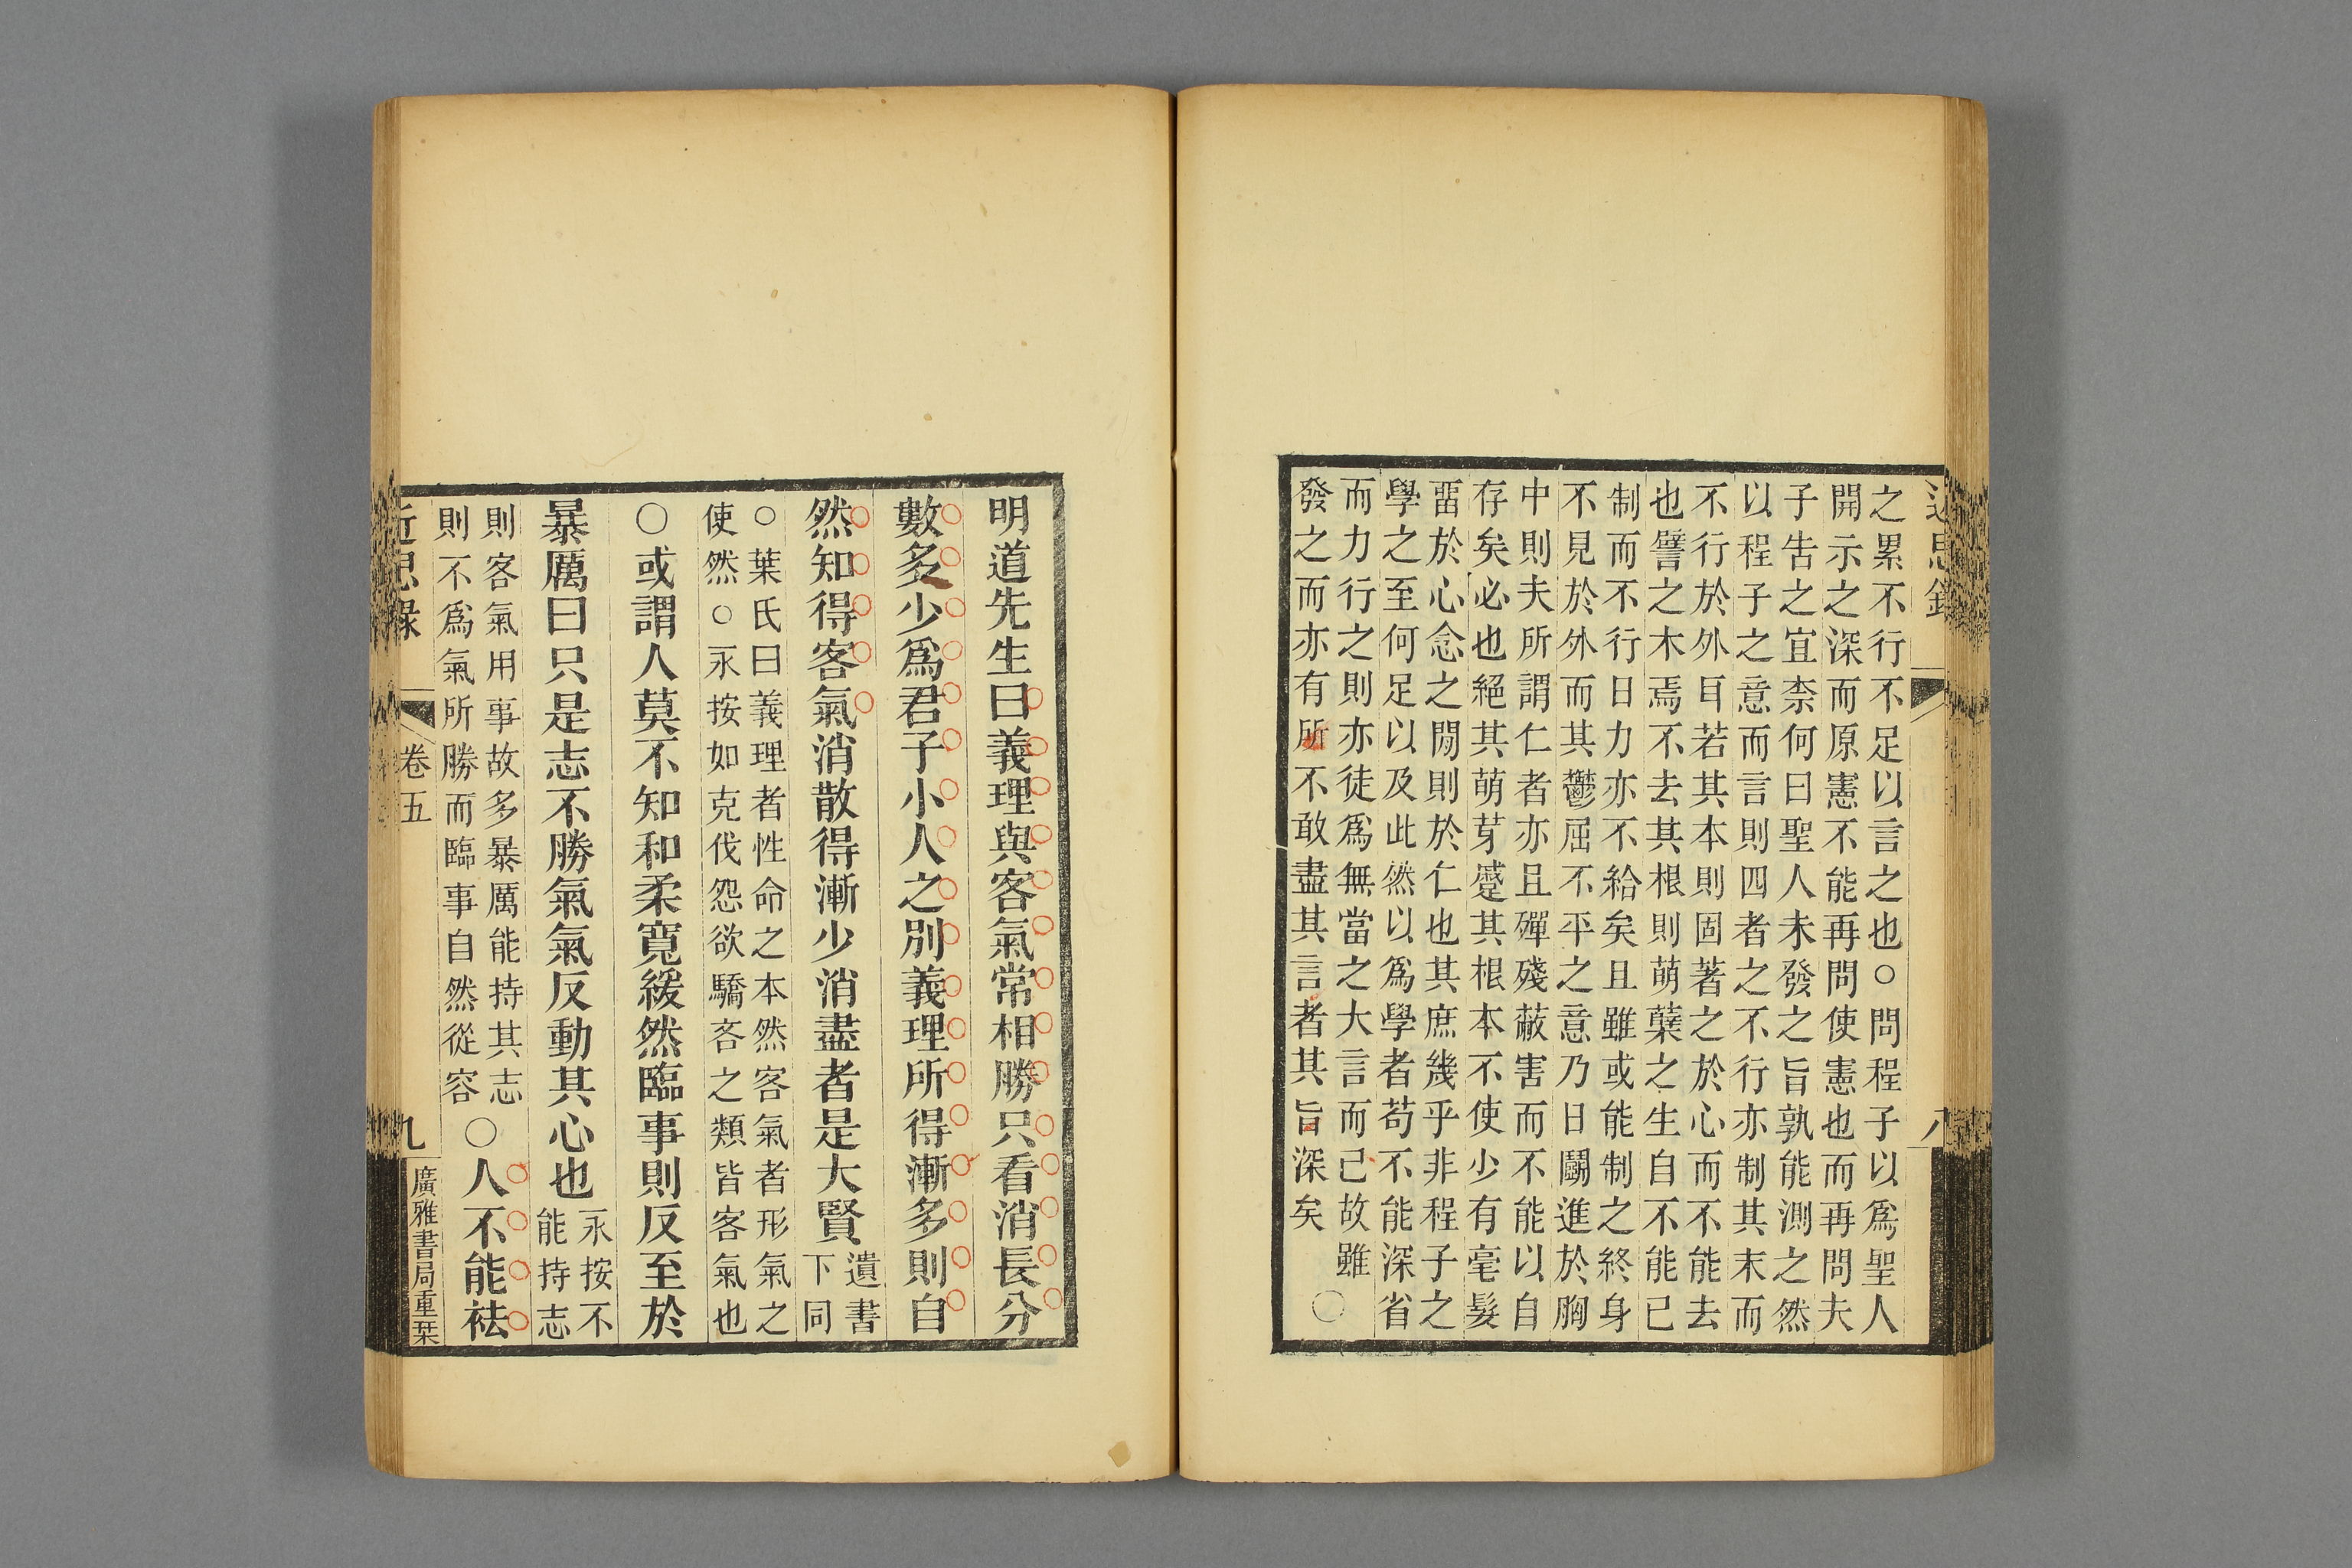 近思錄
八
之累不行不足以言之也○問程子以爲聖人
開示之深而原憲不能再問使憲也而再問夫
子告之宜柰何曰聖人未發之旨孰能測之然
以程子之意而言則四者之不行亦制其末而
不行於外耳若其本則固著之於心而不能去
也譬之木焉不去其根則萌蘖之生自不能已
制而不行日力亦不給矣且雖或能制之終身
不見於外而其鬱屈不平之意乃日鬭進於胸
中則夫所謂仁者亦且殫殘蔽害而不能以自
存矣必也絕其萌芽蹙其根本不使少有毫髮
畱於心念之閒則於仁也其庶幾乎非程子之
學之至何足以及此然以爲學者苟不能深省
而力行之則亦徒爲無當之大言而已故雖
發之而亦有所不敢盡其言者其旨深矣　○
明道先生曰義理與客氣常相勝只看消長分
數多少爲君子小人之別義理所得漸多則自
然知得客氣消散得漸少消盡者是大賢
遺書
下同
○葉氏曰義理者性命之本然客氣者形氣之
使然○永按如克伐怨欲驕吝之類皆客氣也
○或謂人莫不知和柔寬緩然臨事則反至於
暴厲曰只是志不勝氣氣反動其心也
永按不
能持志
則客氣用事故多暴厲能持其志
則不爲氣所勝而臨事自然從容
○人不能祛
近思錄
卷五
九
廣雅書局重栞